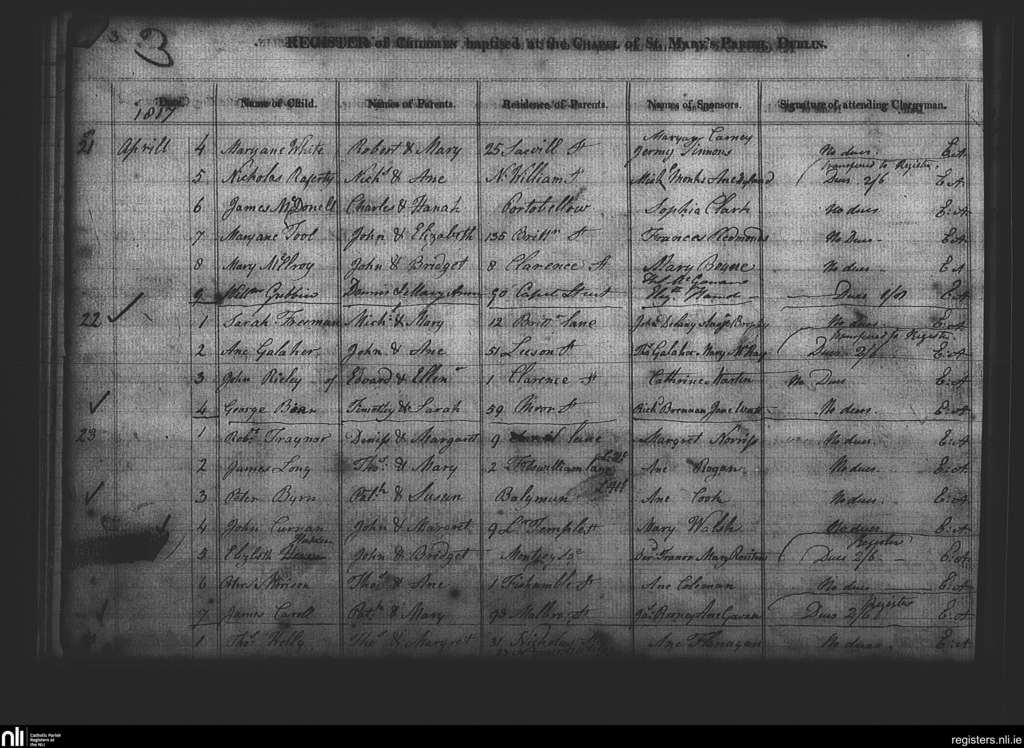 3 3
REGISTER of CHILDREN baptised at the CHAPEL of St. MARY'S PARISH, DUBLIN.
Date. Name of Child. Names of Parents. Residence of Parents. Names of Sponsors. Signature of attending Clergyman.
1817
21 Aprill 4 Maryane White Robert & Mary 25 Savill St Maryan Carney Jermy Simons No dues. E:A
5 Nicholas Raferty Nichs & Ane N. William St Transfered to Register. Dues 2/6 E:A
6 James McDonell Charles & Hanah Portobellow Sophia Clark No dues E:A
7 Maryane Tool John & Elizabeth 135 Brittn St Frances Redmonds No Dues E:A
8 Mary McElroy John & Bridget 8 Clarence St Mary No dues E:A
9 Gubbins Dennis & Mary Ann 90 Capel Street Dues E:A
22 1 Sarah Freeman Michl & Mary 12 Brittn lane John Delany No dues E:A
2 Ane Galaher John & Ane 51 Leeson St Ths Galaher Mary Transfered to Register. Dues 2/6 E:A
3 John Rieley of Edvard & Ellen 1 Clarence St Cathrine Martin No Dues E:A
4 George Timothy & Sarah 59 Moor St Richd Brennan Jane No dues E:A
23 1 Robt Traynor Deniss & Margaret 9 lane Margret Norriss No dues. E:A
2 James Long Thos & Mary 2 Fitswilliam lane Ane Rogan No dues E:A
3 Peter Byrn Patk & Susun Balymun Ane Cook No dues. E:A
4 John Curnan John & Margret 9 Lr Temple St Mary Walsh No dues E:A
5 Elizbth John & Bridget Mary Register Dues 2/6 E:A
6 Thos & Ane 1 Fishamble St Ane Coleman No dues E:A
7 James Caroll Patk & Mary 98 Mallbro St Register Dues 2/6 E:A
1 Thos Kelly Thos & Margret 31 Nicholas St Ane Flanagan No dues E:A
nli Catholic Parish Registers at the NLI
registers.nli.ie